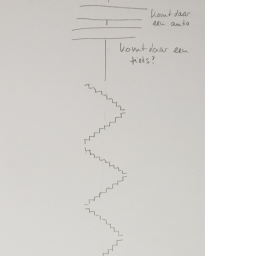 komt daar
een auto
komt daar een
fiets?